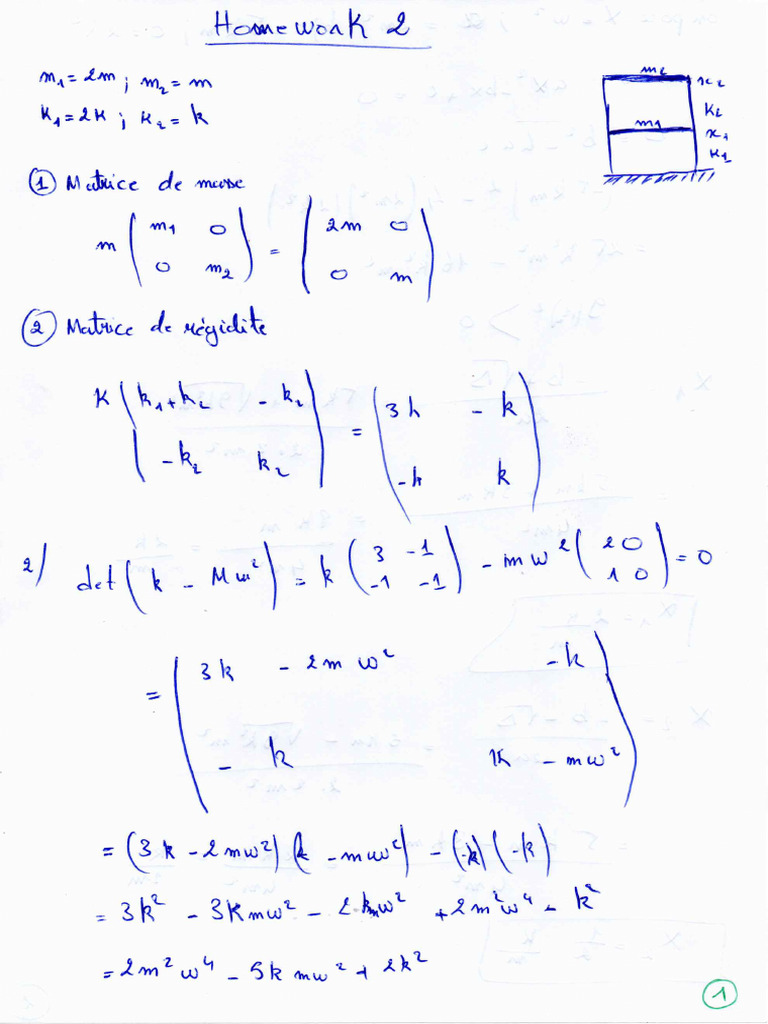 Homework 2
m₁ = 2m ; m₂ = m
K₁ = 2K ; K₂ = k
m₂
x₂
K₂
m₁
x₁
K₁
① Matrice de masse
m ( m₁ 0 ) = ( 2m 0 )
( 0 m₂ ) ( 0 m )
② Matrice de régidite
K ( k₁+k₂ -k₂ ) = ( 3k -k )
( -k₂ k₂ ) ( -k k )
2) det ( k - Mω² ) = k ( 3 -1 ) - mω² ( 2 0 ) = 0
( -1 -1 ) ( 1 0 )
= ( 3k - 2mω² -k )
( -k K - mω² )
= (3k - 2mω²) (k - mω²) - (-k) (-k)
= 3k² - 3Kmω² - 2kmω² + 2m²ω⁴ - k²
= 2m²ω⁴ - 5kmω² + 2k²
1